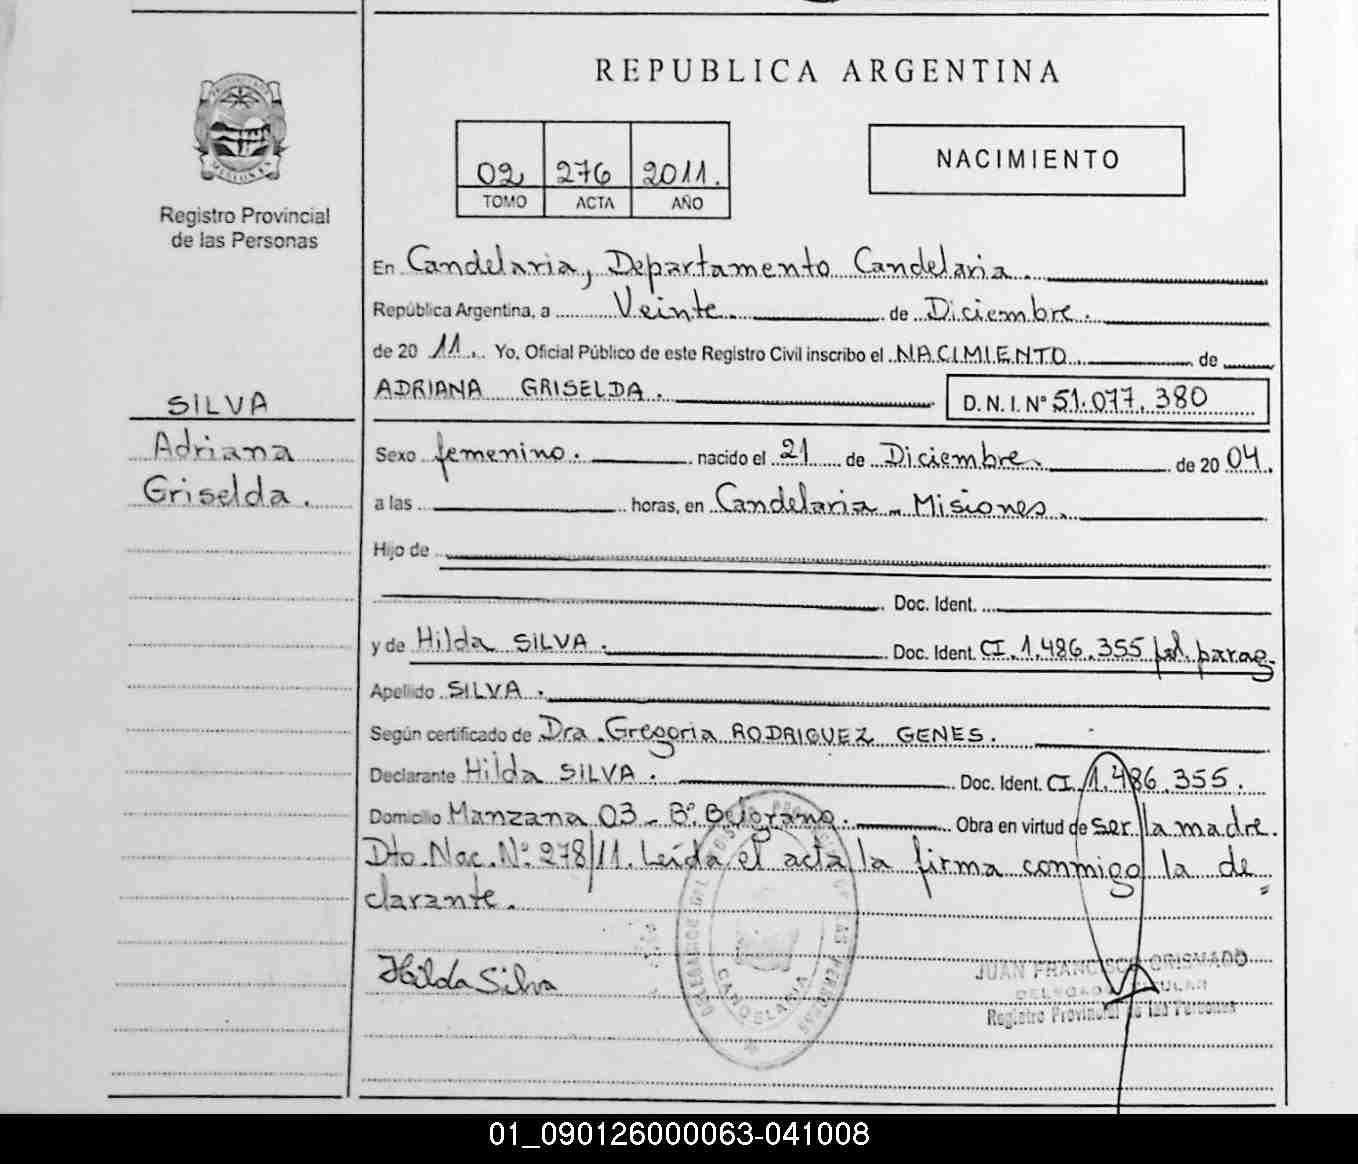 REPUBLICA ARGENTINA
Registro Provincial
de las Personas
02 276 2011.
TOMO ACTA AÑO
NACIMIENTO
SILVA
Adriana
Griselda.
En Candelaria, Departamento Candelaria.
República Argentina, a Veinte. de Diciembre.
de 20 11. Yo, Oficial Público de este Registro Civil inscribo el NACIMIENTO de
ADRIANA GRISELDA. D.N.I. Nº 51.077.380
Sexo femenino. nacido el 21 de Diciembre. de 20 04.
a las horas, en Candelaria - Misiones.
Hijo de
Doc. Ident.
y de Hilda SILVA. Doc. Ident. CI. 1.486.355 pol. parag.
Apellido SILVA.
Según certificado de Dra. Gregoria RODRIGUEZ GENES.
Declarante Hilda SILVA. Doc. Ident. CI. 1.486.355.
Domicilio Manzana 03 - Bº Belgrano. Obra en virtud de ser la madre.
Dto. Nac. Nº 278/11. Leída el acta la firma conmigo la de
clarante.
Hilda Silva
CANDELARIA
JUAN FRANCISCO
Registro Provincial de las Personas
01_090126000063-041008